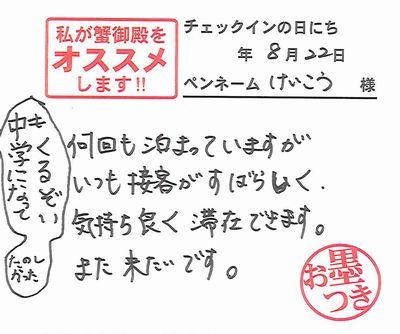 私が蟹御殿を
オススメ
します!!
チェックインの日にち
年 8月22日
ペンネーム けいこう 様
何回も泊まっていますが
いつも接客がすばらしく、
気持ち良く滞在できます。
また来たいです。
中学になって
もくるぞい
たのし
かった
お墨
つき